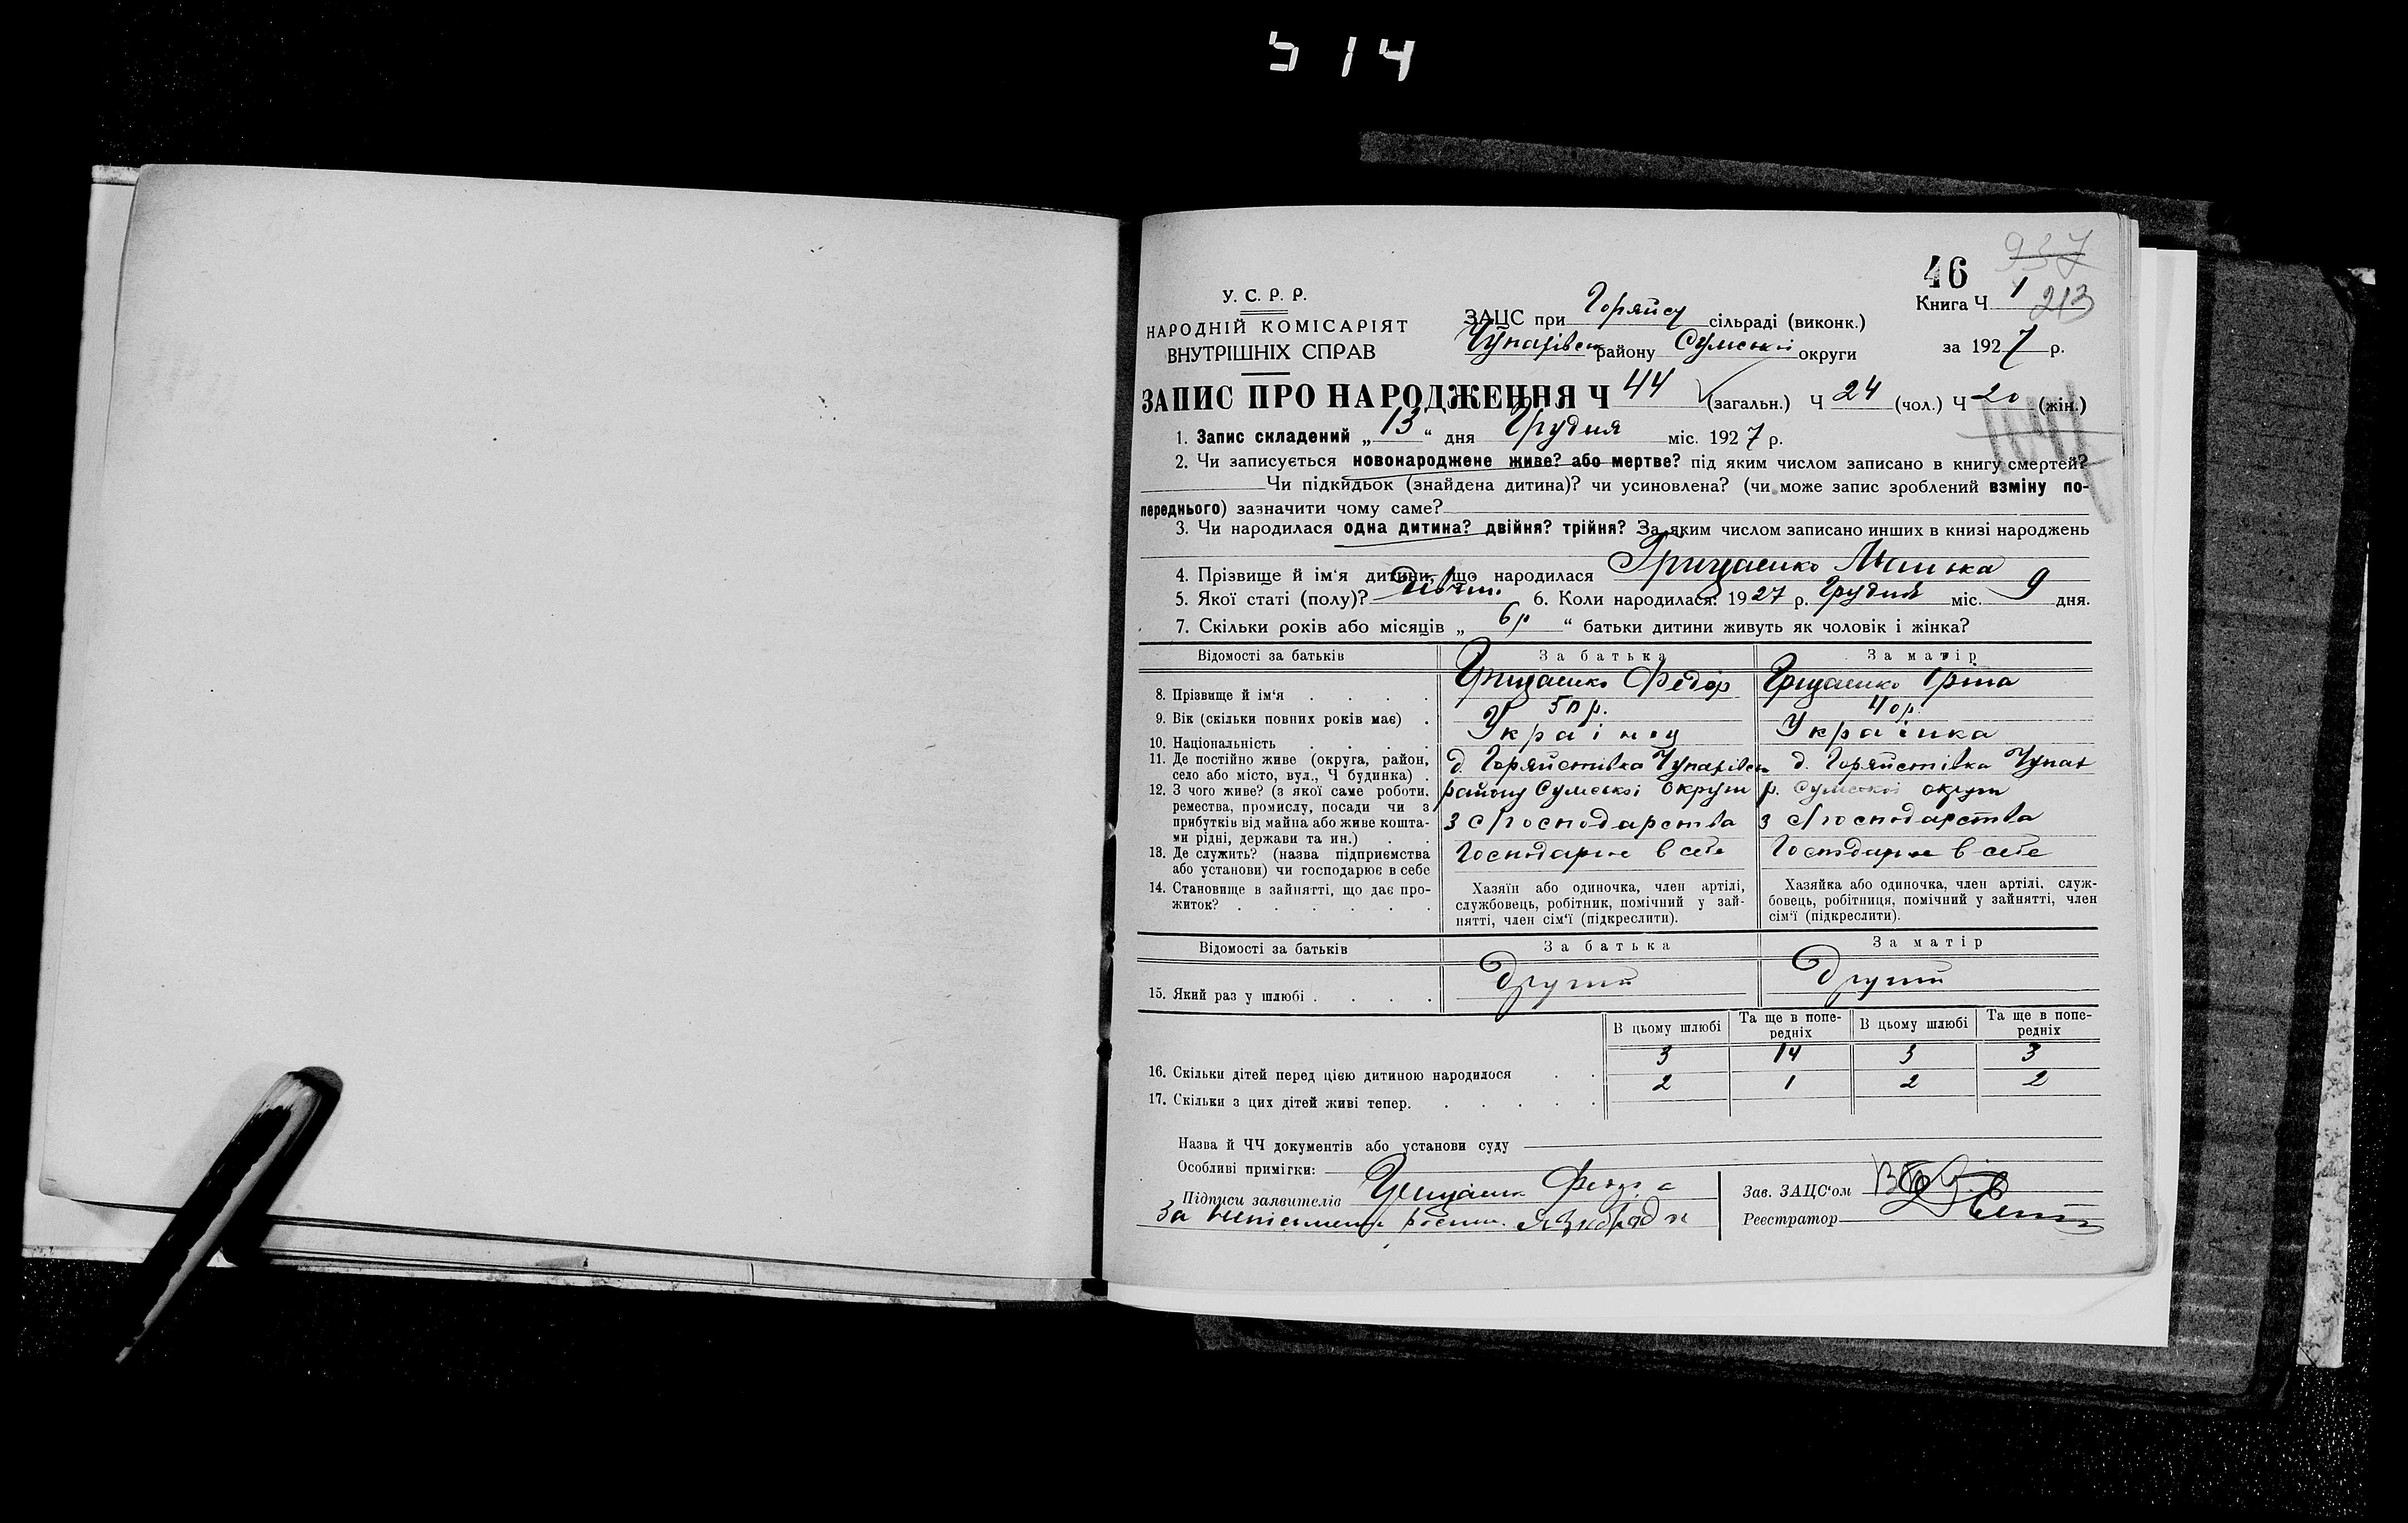 514
46
937
213
Книга Ч 1
У. С. Р. Р.
НАРОДНІЙ КОМІСАРІЯТ
ВНУТРІШНІХ СПРАВ
ЗАЦС при сільраді (виконк.)
району Сумської округи
за 1927 р.
ЗАПИС ПРО НАРОДЖЕННЯ Ч 44 (загальн.) Ч 24 (чол.) Ч 20 (жін.)
1. Запис складений „13“ дня Грудня міс. 1927 р.
2. Чи записується новонароджене живе? або мертве? під яким числом записано в книгу смертей?
Чи підкидьок (знайдена дитина)? чи усиновлена? (чи може запис зроблений взміну по-
переднього) зазначити чому саме?
3. Чи народилася одна дитина? двійня? трійня? За яким числом записано инших в книзі народжень
4. Прізвище й ім‘я дитини, що народилася Грищаенко
5. Якої статі (полу)? 6. Коли народилася: 1927 р. Грудня міс. 9 дня.
7. Скільки років або місяців „6р“ батьки дитини живуть як чоловік і жінка?
Відомості за батьків За батька За матір
8. Прізвище й ім‘я Грищаенко Федор Грищаенко Іріна
9. Вік (скільки повних років має) 50 р. 40 р.
10. Національність Українец Українка
11. Де постійно живе (округа, район,
село або місто, вул., Ч будинка)
д. Горяйстівка д. Горяйстівка
12. З чого живе? (з якої саме роботи,
ремества, промислу, посади чи з
прибутків від майна або живе кошта-
ми рідні, держави та ин.)
району Сумської округи р. Сумської округи
з с/господарства з с/господарства
13. Де служить? (назва підприємства
або установи) чи господарює в себе
Господарює в себе Господарює в себе
14. Становище в зайнятті, що дає про-
житок?
Хазяїн або одиночка, член артілі,
службовець, робітник, помічний у зай-
нятті, член сім‘ї (підкреслити).
Хазяйка або одиночка, член артілі, служ-
бовець, робітниця, помічний у зайнятті, член
сім‘ї (підкреслити).
Відомості за батьків За батька За матір
15. Який раз у шлюбі Другий Другий
В цьому шлюбі Та ще в попе-
редніх В цьому шлюбі Та ще в попе-
редніх
16. Скільки дітей перед цією дитиною народилося 3 14 3 3
17. Скільки з цих дітей живі тепер. 2 1 2 2
Назва й ЧЧ документів або установи суду
Особливі примітки:
Підписи заявителів
За
Зав. ЗАЦС‘ом
Реєстратор